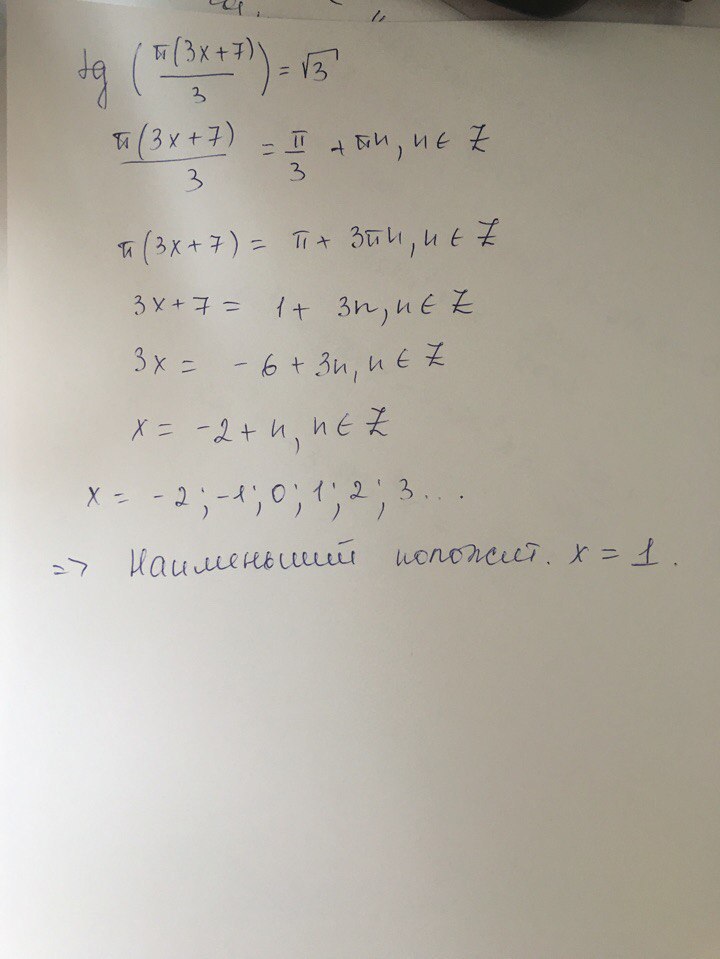 tg (π(3x+7)/3) = √3
π(3x+7)/3 = π/3 + πn, n ∈ Z
π(3x+7) = π + 3πn, n ∈ Z
3x+7 = 1+ 3n, n ∈ Z
3x = -6 + 3n, n ∈ Z
x = -2 + n, n ∈ Z
x = -2; -1; 0; 1; 2; 3...
=> Наименьший положит. x = 1.